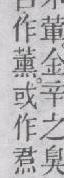 葷金辛之臭
作薰。或作焄